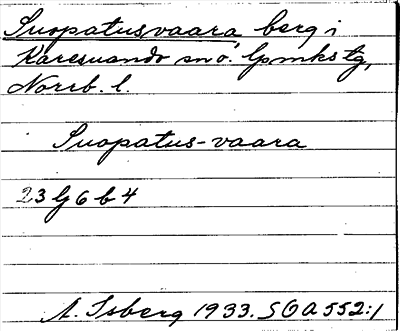 Suopatusvaara, berg i
Karesuando sn o. lpmks tg,
Norrb. l.
Suopatus-vaara
23 lj 6 b 4
A. Isberg 1933. SOA 552:1